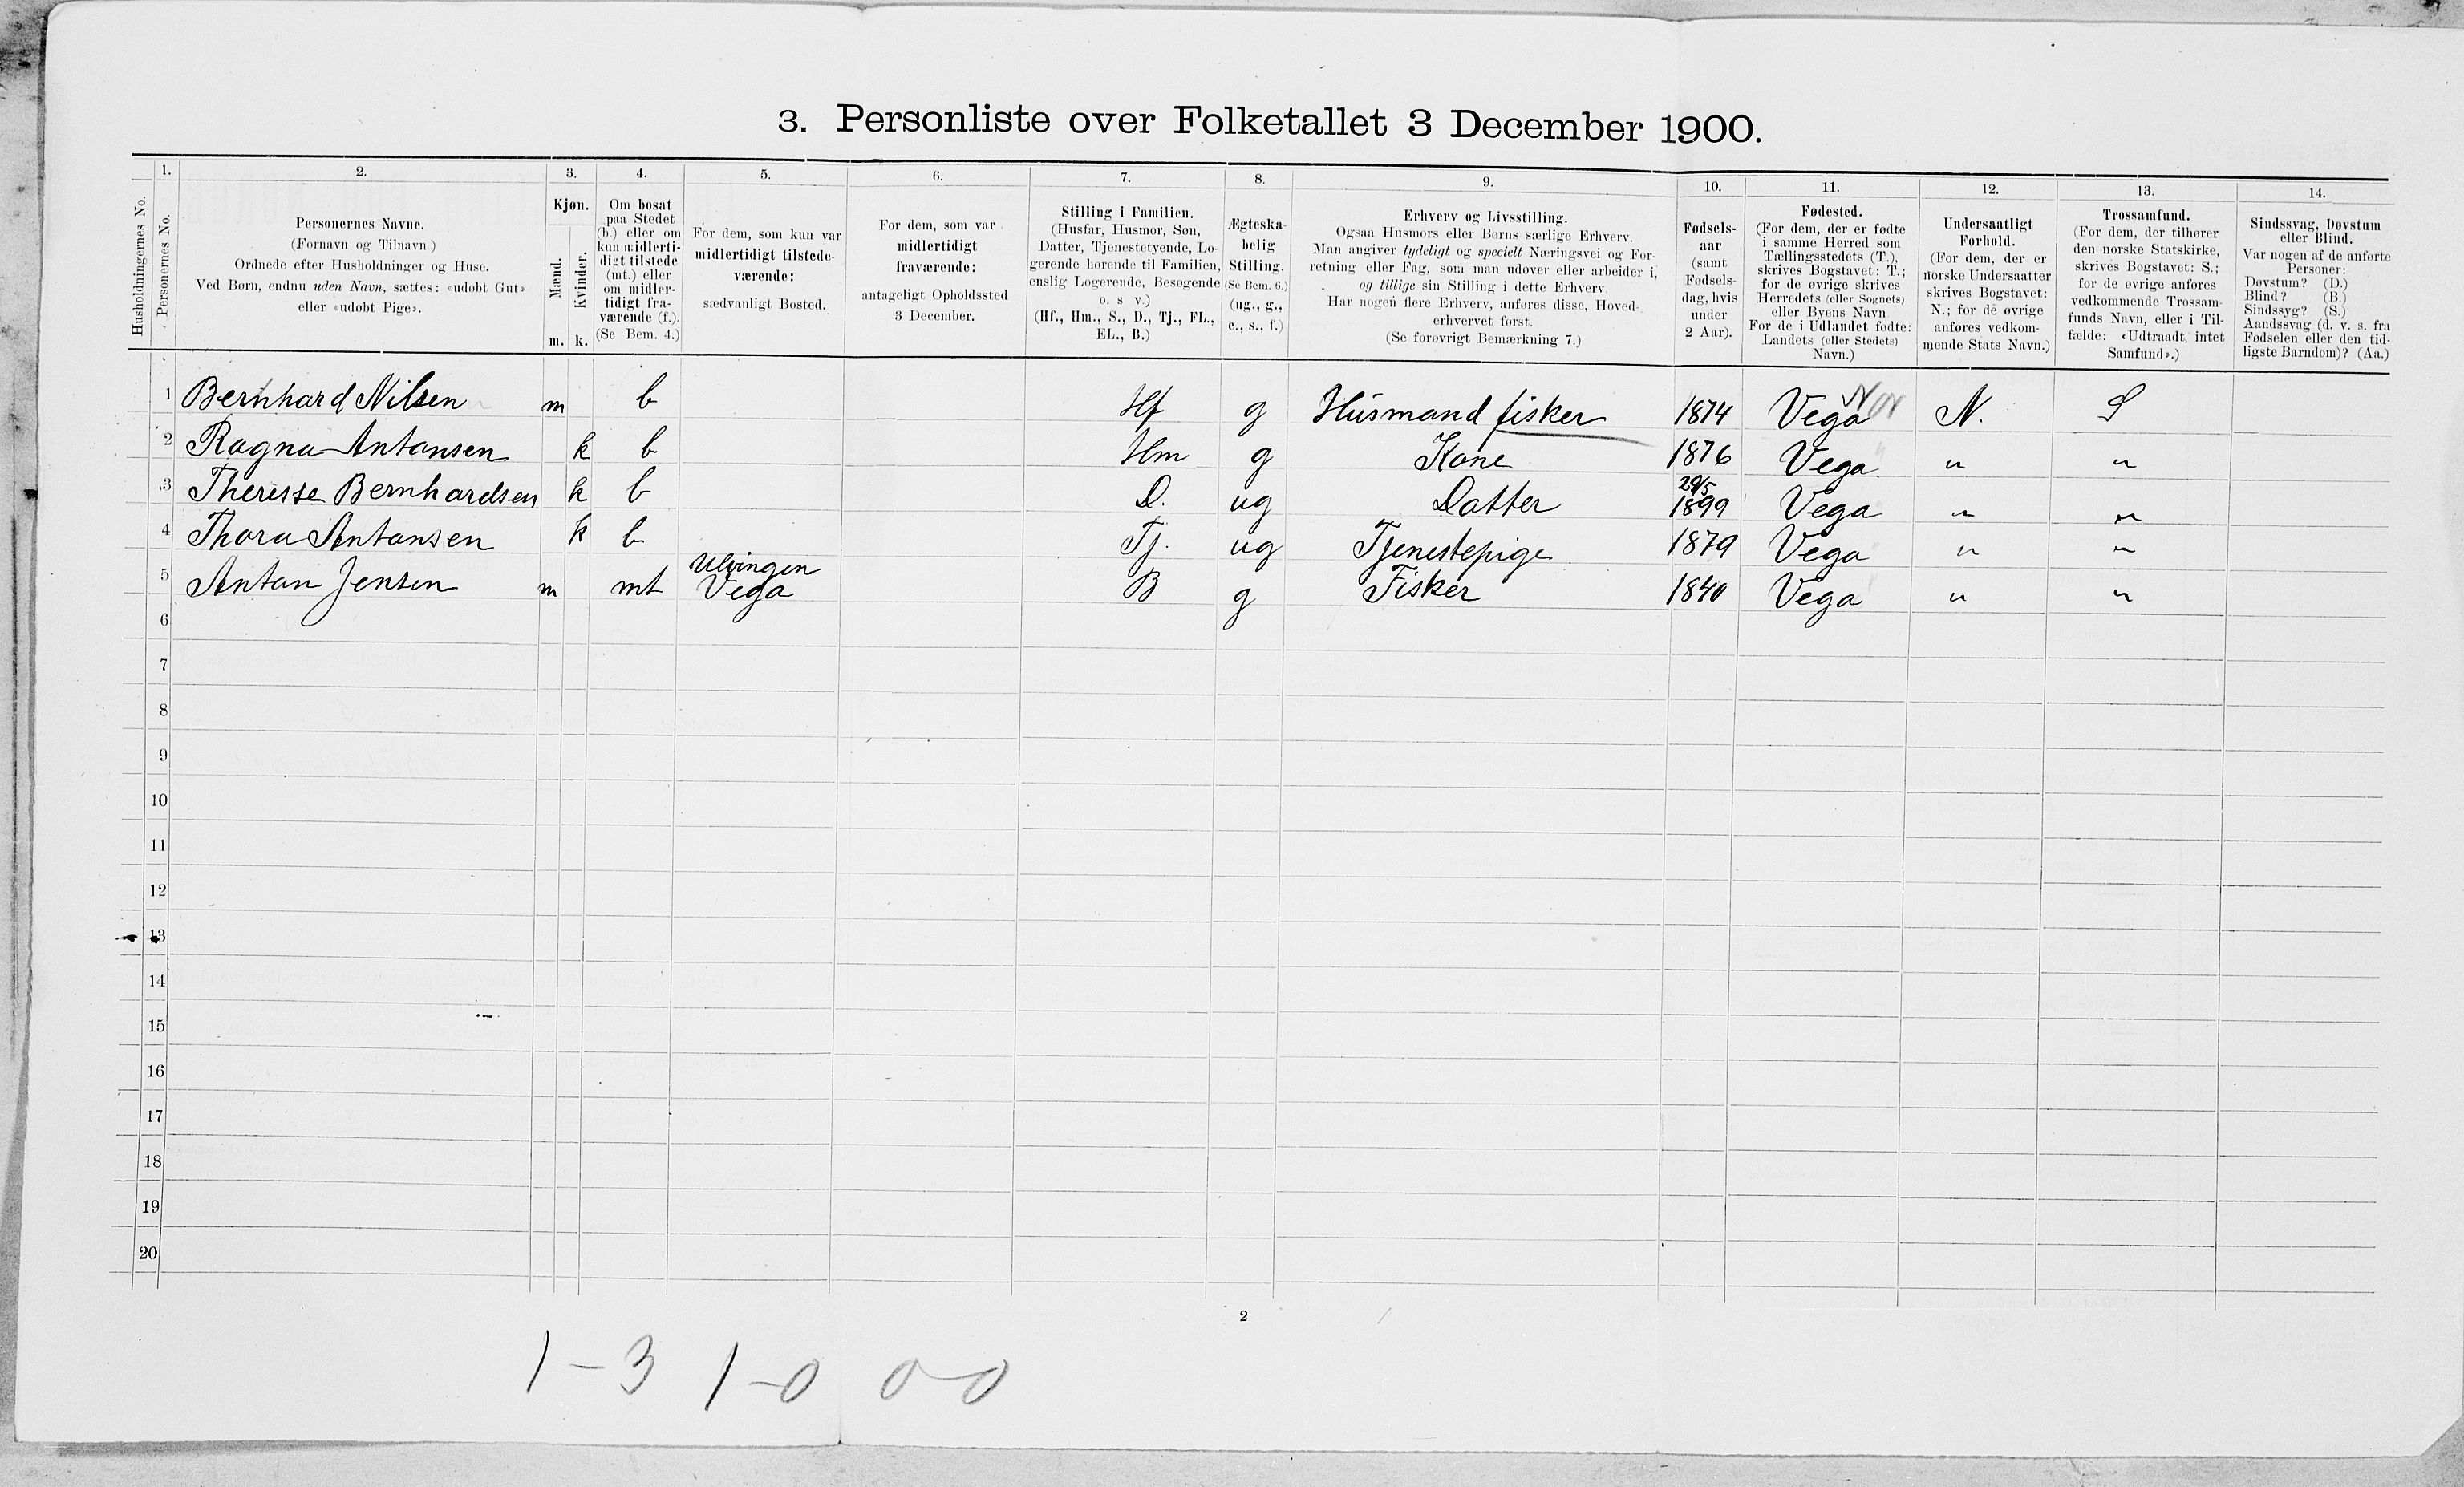 3. Personliste over Folketallet 3 December 1900.
1. 2. 3. 4. 5. 6. 7. 8. 9. 10. 11. 12. 13. 14.
Husholdningernes No.
Personernes No.
Personernes Navne.
(Fornavn og Tilnavn.)
Ordnede efter Husholdninger og Huse.
Ved Børn, endnu uden Navn, sættes: «udøbt Gut»
eller «udøbt Pige».
Kjøn.
Mænd.
Kvinder.
m. k.
Om bosat
paa Stedet
(b.) eller om
kun midlerti-
digt tilstede
(mt.) eller
om midler-
tidigt fra-
værende (f.).
(Se Bem. 4.)
For dem, som kun var
midlertidigt tilstede-
værende:
sædvanligt Bosted.
For dem, som var
midlertidigt
fraværende:
antageligt Opholdssted
3 December.
Stilling i Familien.
(Husfar, Husmor, Søn,
Datter, Tjenestetyende, Lo-
gerende hørende til Familien,
enslig Logerende, Besøgende
o. s v.)
(Hf., Hm., S., D., Tj., FL.,
EL., B.)
Ægteska-
belig
Stilling.
(Se Bem. 6.)
(ug., g.,
e., s., f.)
Erhverv og Livsstilling.
Ogsaa Husmors eller Børns særlige Erhverv.
Man angiver tydeligt og specielt Næringsvei og For-
retning eller Fag, som man udøver eller arbeider i,
og tillige sin Stilling i dette Erhverv.
Har nogen flere Erhverv, anføres disse, Hoved-
erhvervet først.
(Se forøvrigt Bemærkning 7.)
Fødsels-
aar
(samt
Fødsels-
dag, hvis
under
2 Aar).
Fødested.
(For dem, der er fødte
i samme Herred som
Tællingsstedets (T.),
skrives Bogstavet: T.;
for de øvrige skrives
Herredets (eller Sognets)
eller Byens Navn
For de i Udlandet fødte:
Landets (eller Stedets)
Navn.)
Undersaatligt
Forhold.
(For dem, der er
norske Undersaatter
skrives Bogstavet:
N.; for de øvrige
anføres vedkom-
mende Stats Navn.)
Trossamfund.
(For dem, der tilhører
den norske Statskirke,
skrives Bogstavet: S.;
for de øvrige anføres
vedkommende Trossam-
funds Navn, eller i Til-
fælde: «Udtraadt, intet
Samfund».)
Sindssvag, Døvstum
eller Blind.
Var nogen af de anførte
Personer:
Døvstum? (D.)
Blind? (B.)
Sindssyg? (S.)
Aandssvag (d. v. s. fra
Fødselen eller den tid-
ligste Barndom)? (Aa.)
1 Bernhard Nilsen m b Hf g Husmand fisker 1874 Vega N. S
2 Ragna Antonsen k b Hm g Kone 1876 Vega " "
3 Therisse Bernhardsen k b D. ug Datter 29/5 1899 Vega " "
4 Thora Antonsen k b Tj. ug Tjenestepige 1879 Vega " "
5 Anton Jensen m mt Ulvingen Vega B g Fisker 1840 Vega " "
6
7
8
9
10
11
12
13
14
15
16
17
18
19
20
2
1-3 1-0 0-0